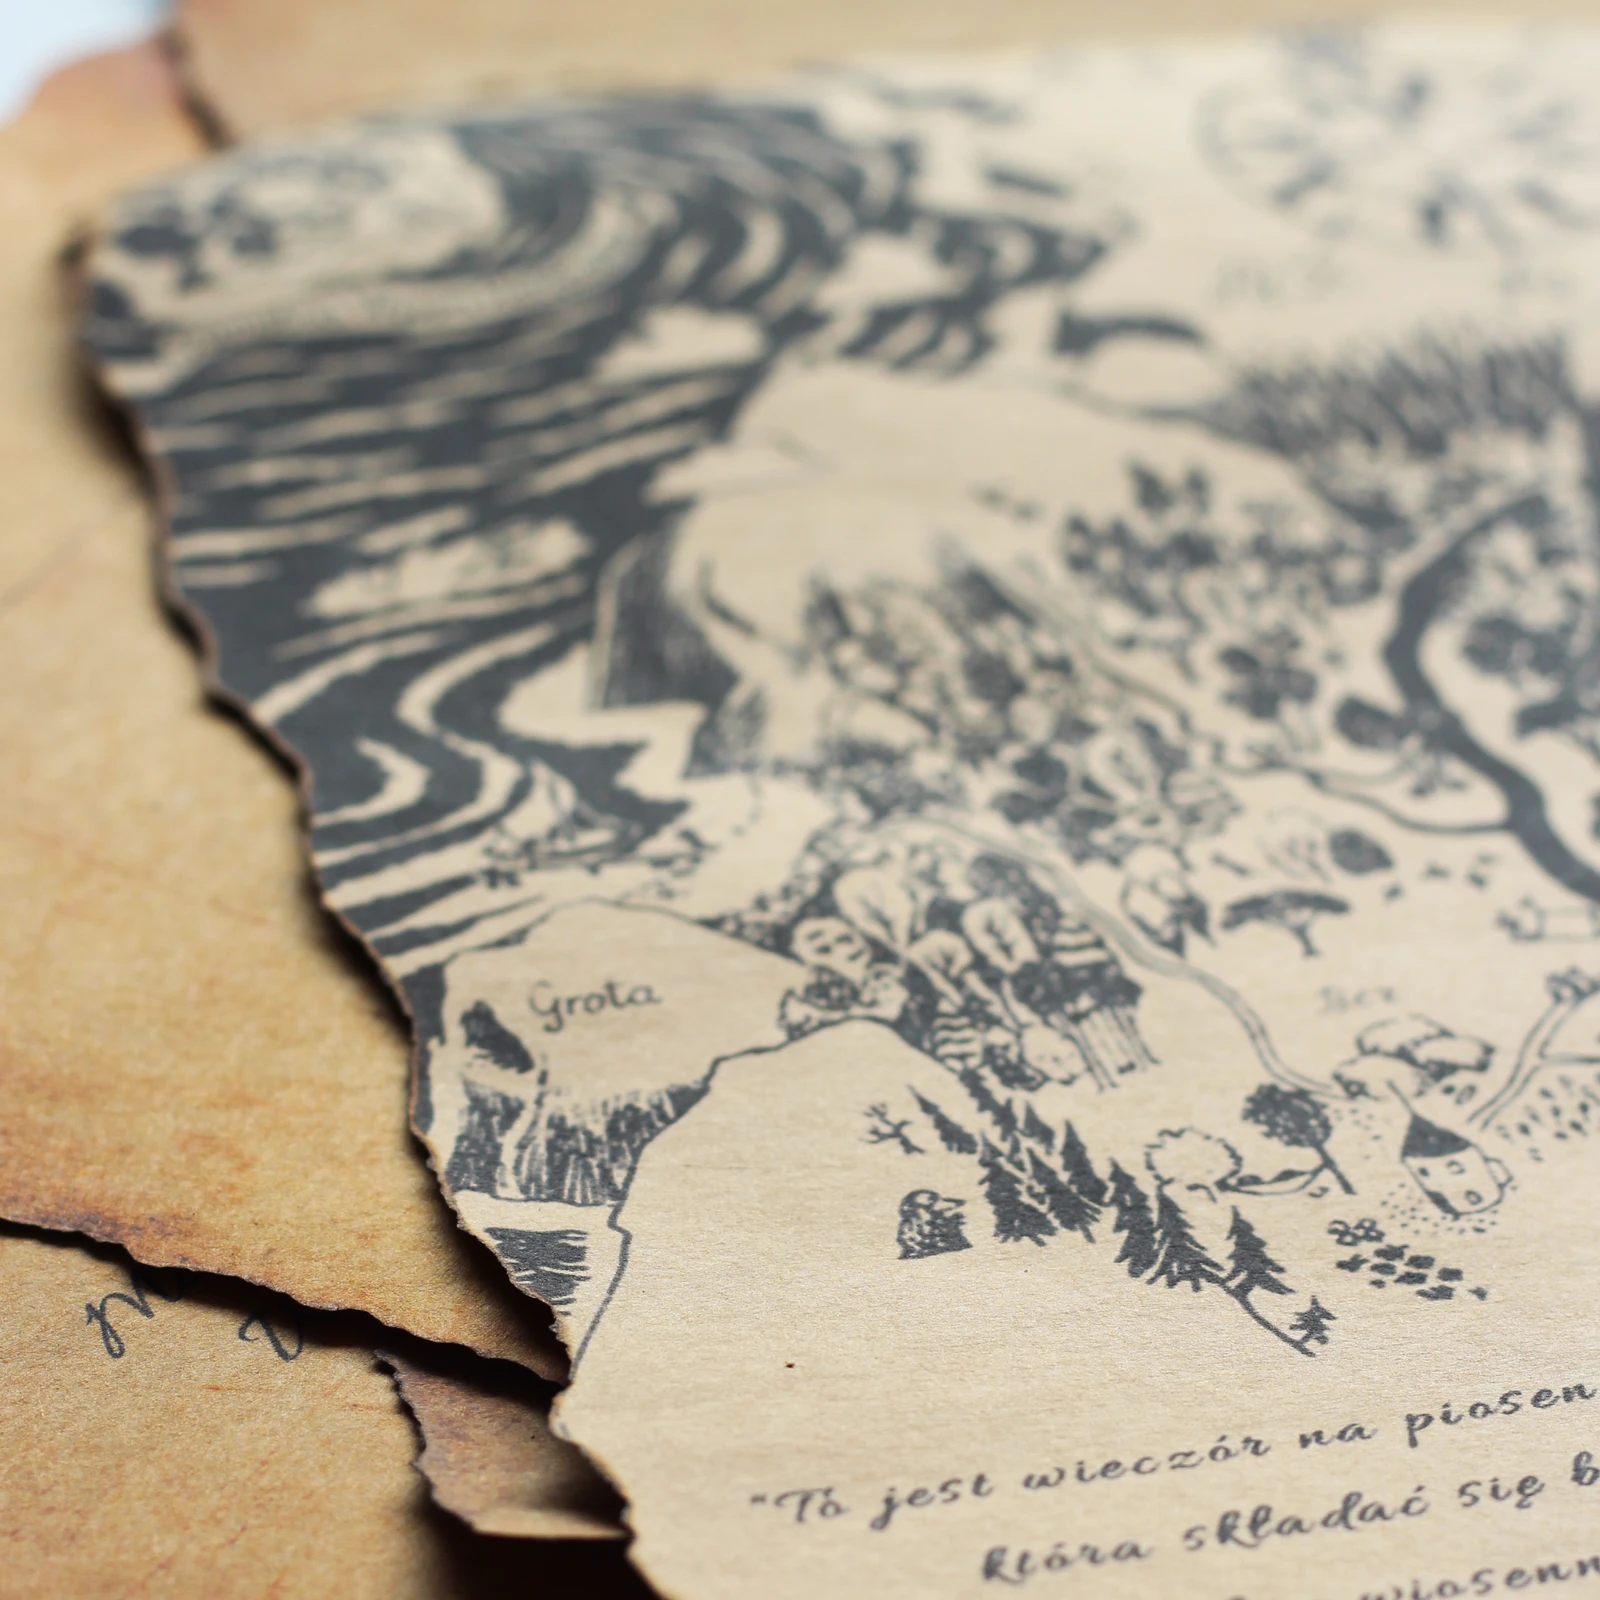 Grota
"To jest wieczór na piosen
która składać się b
wiosenn